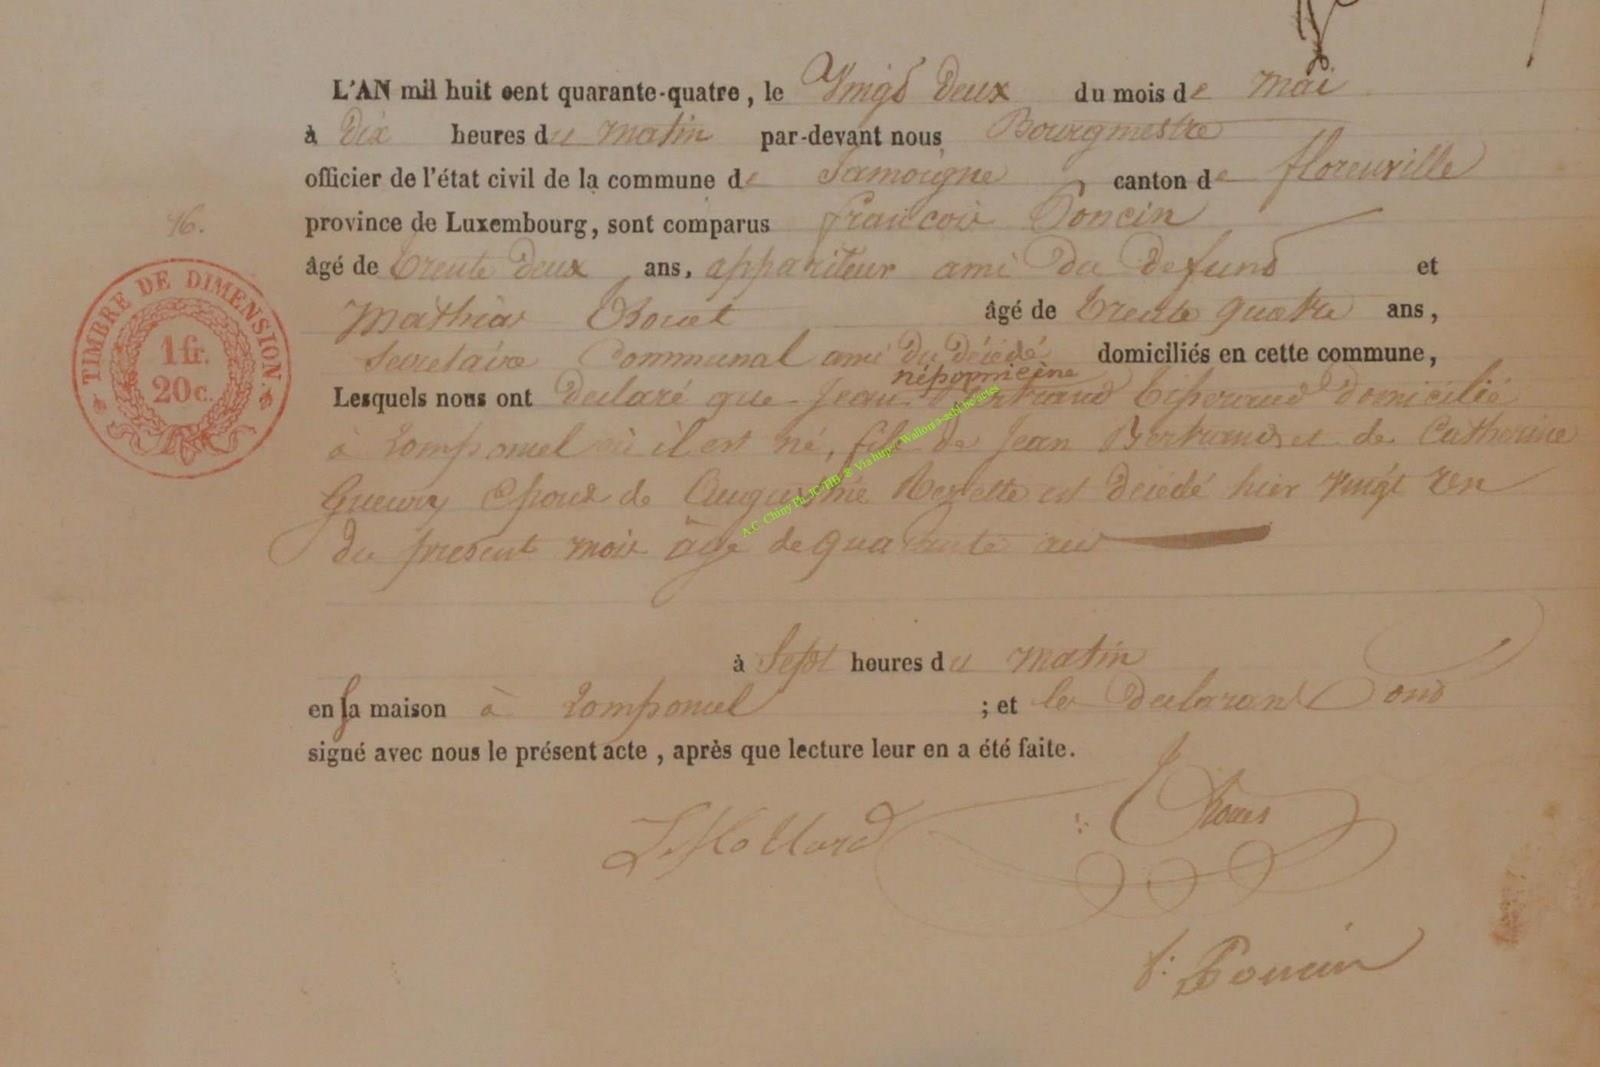 L'AN mil huit cent quarante-quatre, le Vingt Deux du mois de Mai
à Dix heures du matin par-devant nous Bourgmestre
officier de l'état civil de la commune de Jamoigne, canton de florenville
province de Luxembourg, sont comparus francois Poncin
16.
âgé de trente deux ans, appariteur ami du defund et
Mathias âgé de trente quatre ans,
Secretaire Communal ami du décédé domiciliés en cette commune,
népomicène
Lesquels nous ont declaré que Jean Bertrand domicilié
à où il est né, fils de Jean Bertrand et de Catherine
epoux de est décédé hier vingt un
du présent mois âgé de quarante ans
à Sept heures du matin
en sa maison à ; et les declarants ont
signé avec nous le présent acte, après que lecture leur en a été faite.
f. Poncin
TIMBRE DE DIMENSION.
1 fr.
20 c.
A.C. Chiny Ph. JC-HB & Via http://Wallonia-asbl.be/actes